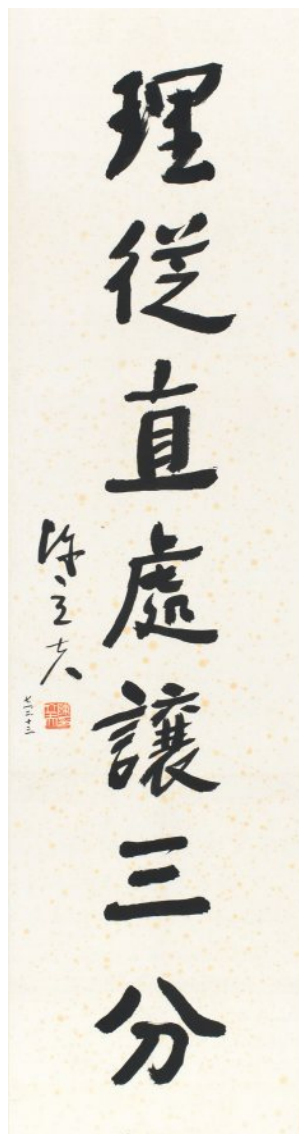 理從直處讓三分
陳立夫